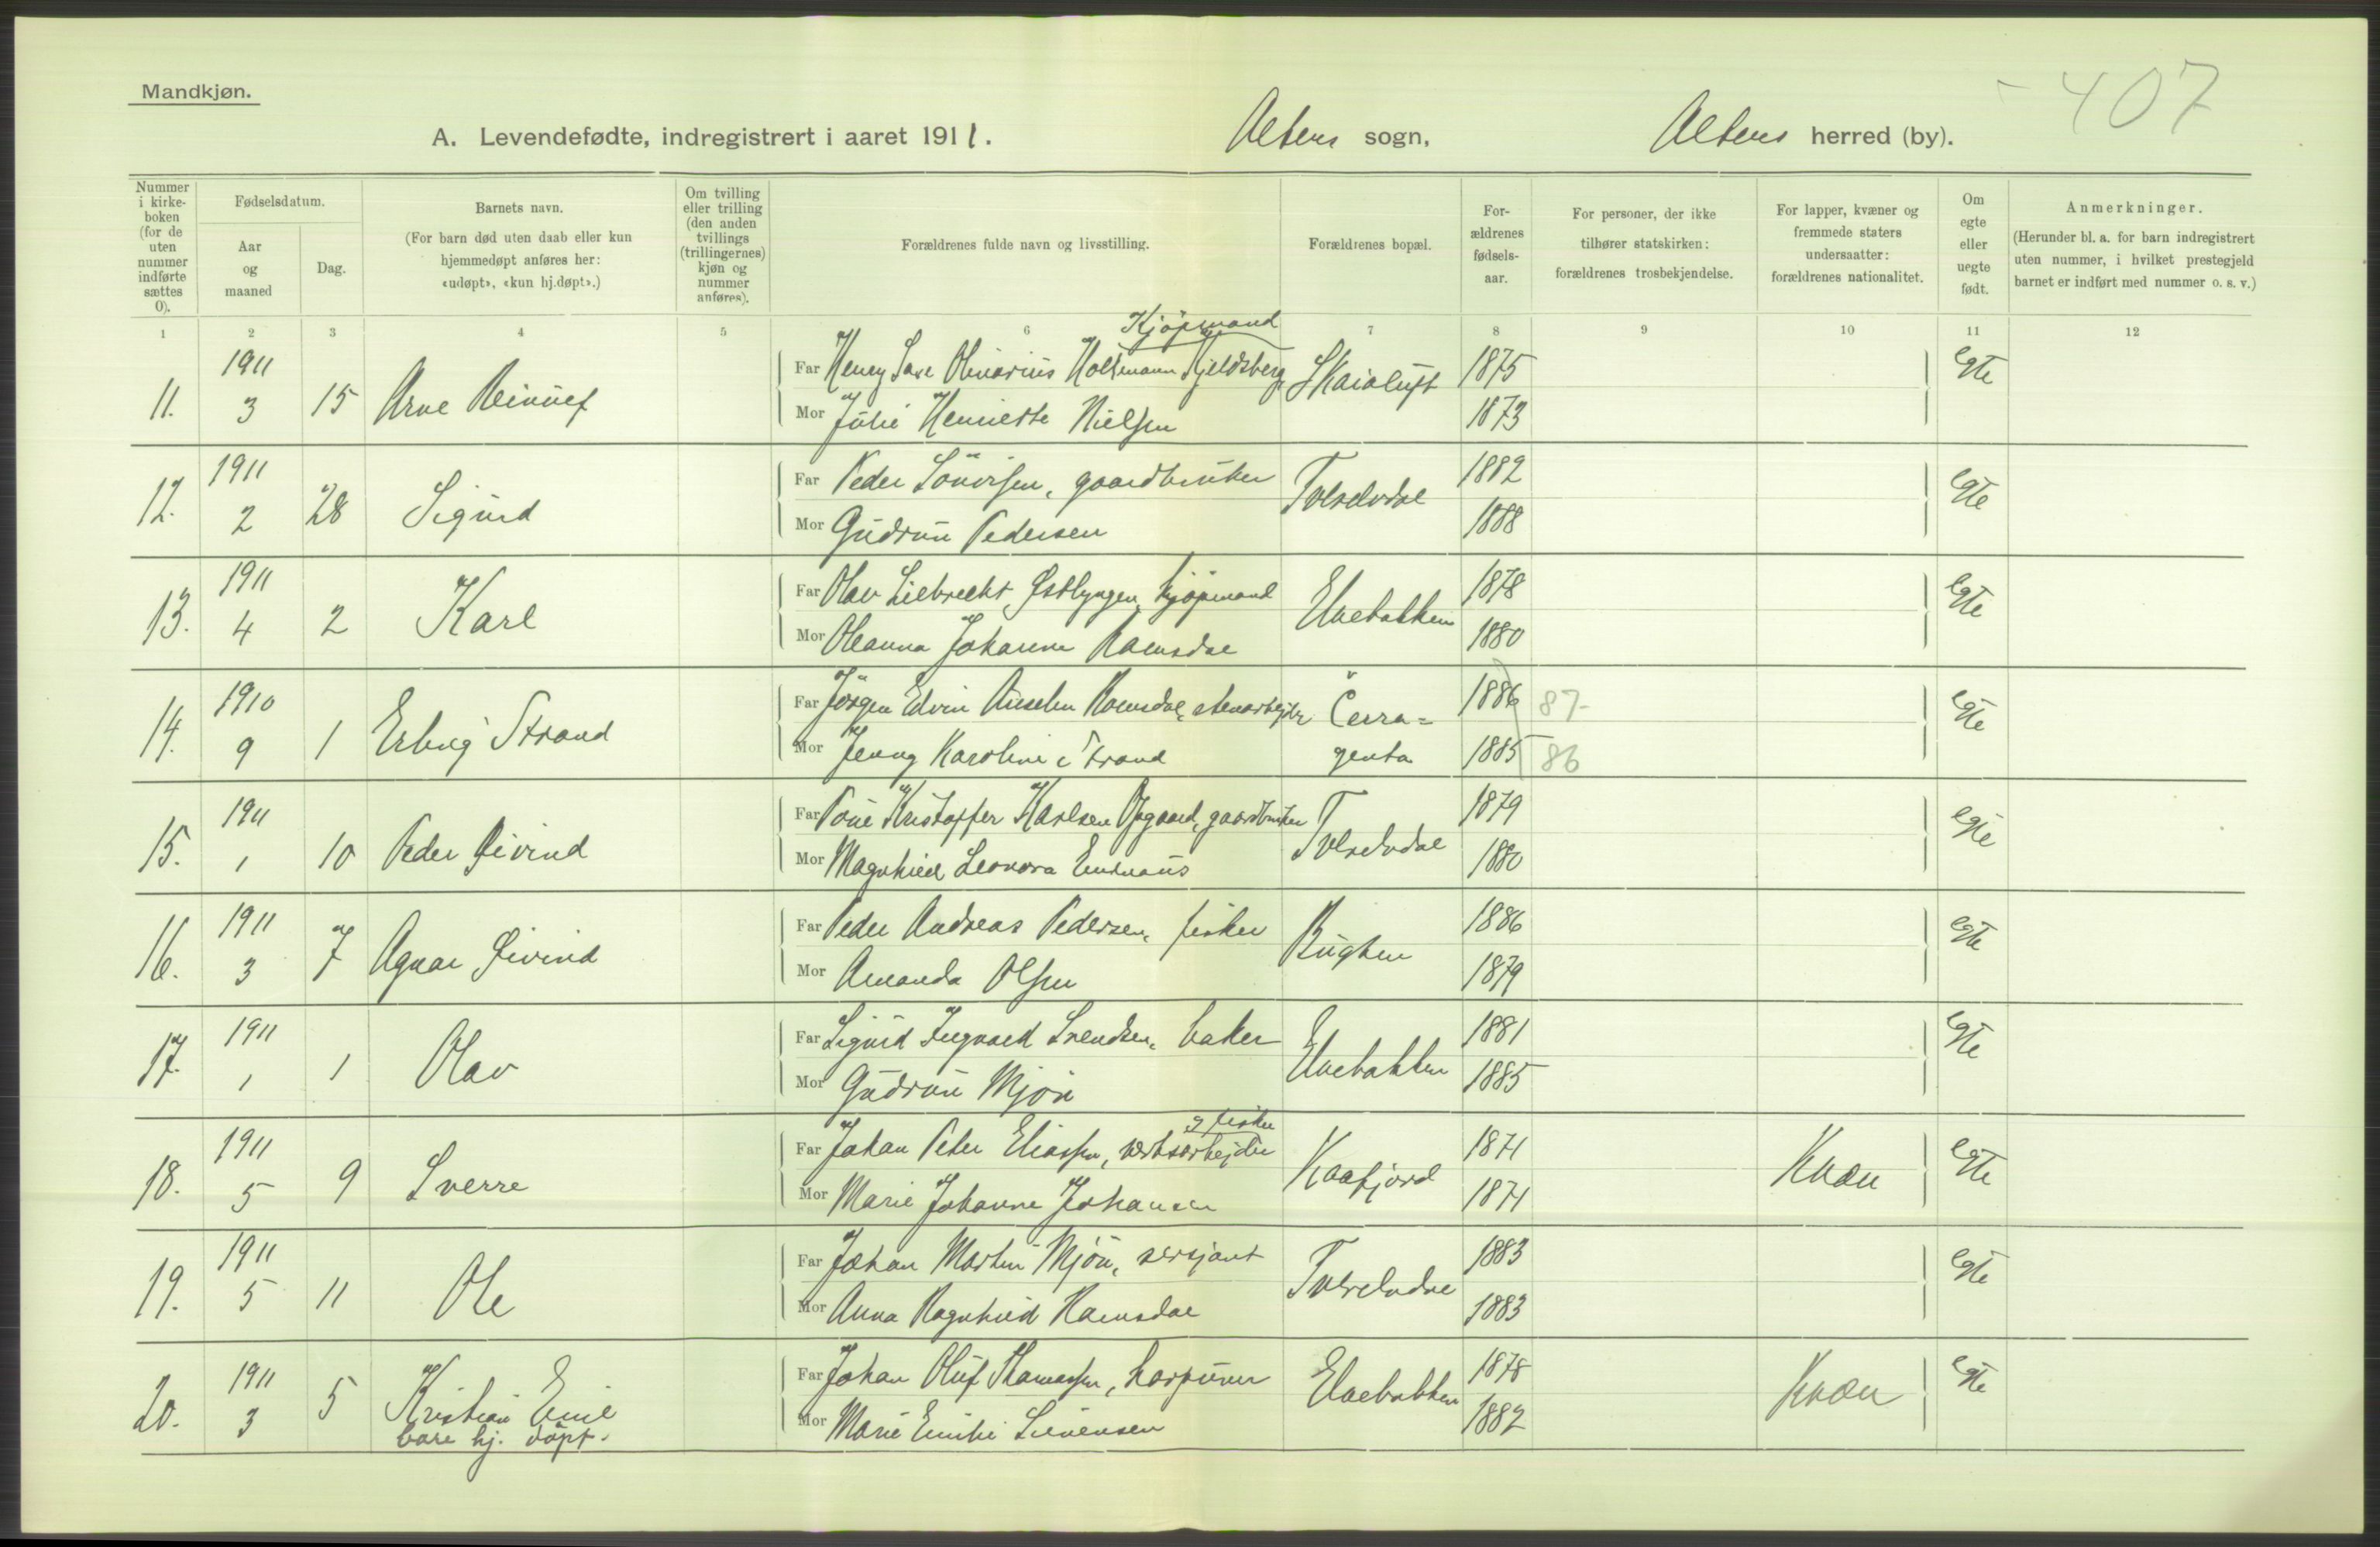 Mandkjøn.
407
A. Levendefødte, indregistrert i aaret 1911.
Altens sogn,
Altens herred (by).
Nummer i kirke-boken (for de uten nummer indførte sættes 0).
Fødselsdatum.
Aar og maaned
Dag.
Barnets navn.
(For barn død uten daab eller kun hjemmedøpt anføres her: «udøpt», «kun hj.døpt».)
Om tvilling eller trilling (den anden tvillings (trillingernes) kjøn og nummer anføres).
Forældrenes fulde navn og livsstilling.
Forældrenes bopæl.
For-ældrenes fødsels-aar.
For personer, der ikke tilhører statskirken: forældrenes trosbekjendelse.
For lapper, kvæner og fremmede staters undersaatter: forældrenes nationalitet.
Om egte eller uegte født.
Anmerkninger.
(Herunder bl. a. for barn indregistrert uten nummer, i hvilket prestegjeld barnet er indført med nummer o. s. v.)
1 2 3 4 5 6 7 8 9 10 11 12
Kjöpmand
11. 1911 3 15 Arne
Far Henry Olinarius Holtmann Kjeldsberg Skaialuft 1875 egte
Mor Julie Henriette Nielsen 1873
12. 1911 2 28 Sigurd
Far Peder gaardbruker Tverelvdal 1882 egte
Mor Gudrun Pedersen 1888
13. 1911 4 2 Karl
Far Olav Liebrecht Østlyngen, kjöpmand Elvebakken 1878 egte
Mor Oleanna Johanne Ramsdal 1880
14. 1910 9 1 Erling Strand
Far Jörgen Edvin Anselm Ramsdal, stenarbejder Cerra= 1886 87 egte
Mor Jenny Karoline Strand genta 1885 86
15. 1911 1 10 Peder Øivind
Far Kristoffer Karlsen Opgaard, gaardbruker Tverelvdal 1879 egte
Mor Magnhild Leonora 1880
16. 1911 3 7 Agnar Øivind
Far Peder Andreas Pedersen, fisker Bugten 1886 egte
Mor Amanda Olsen 1879
17. 1911 1 1 Olav
Far Sigurd Ingvard Svendsen, baker Elvebakken 1881 egte
Mor Gudrun Mjön 1885
g fisker
18. 1911 5 9 Sverre
Far Johan Peter Eliassen, verksarbejder Kaafjord 1871 Kvæn egte
Mor Marie Johanne Johansen 1871
19. 1911 5 11 Ole
Far Johan Martin Mjön, sersjant Tverelvdal 1883 egte
Mor Anna Ragnhild Ramsdal 1883
20. 1911 3 5 Kristian Emil
bare hj. döpt.
Far Johan Oluf Thomassen, harpuner Elvebakken 1878 Kvæn egte
Mor Marie Emilie 1882